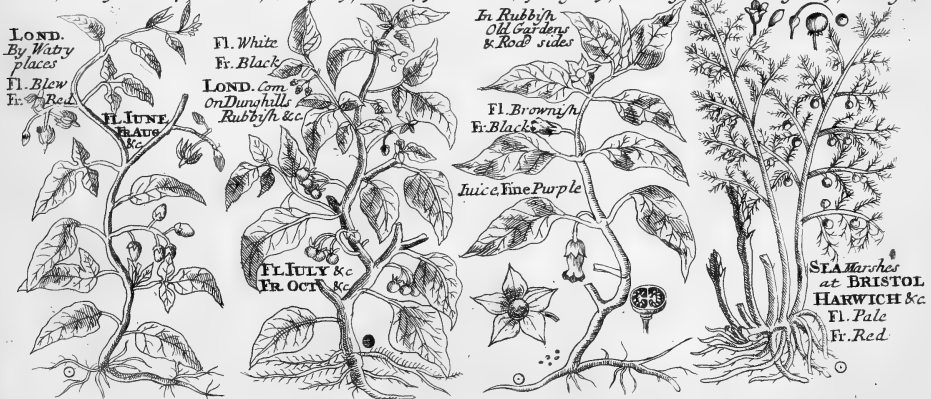 LOND.
By Watry
places
Fl. Blew
Fr. Red
FL. IUNE
FR. AUG
&c
Fl. White
Fr. Black
LOND. Com
on Dunghills
Rubbish &c.
FL. IULY &c
FR. OCT. &c
In Rubbish
Old Gardens
& Road sides
Fl. Brownish
Fr. Black
Iuice, Fine Purple
SEA Marshes
at BRISTOL
HARWICH &c
Fl. Pale
Fr. Red